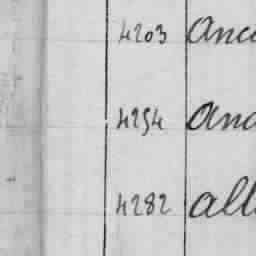 4203 Anc
4254 And
4282 all